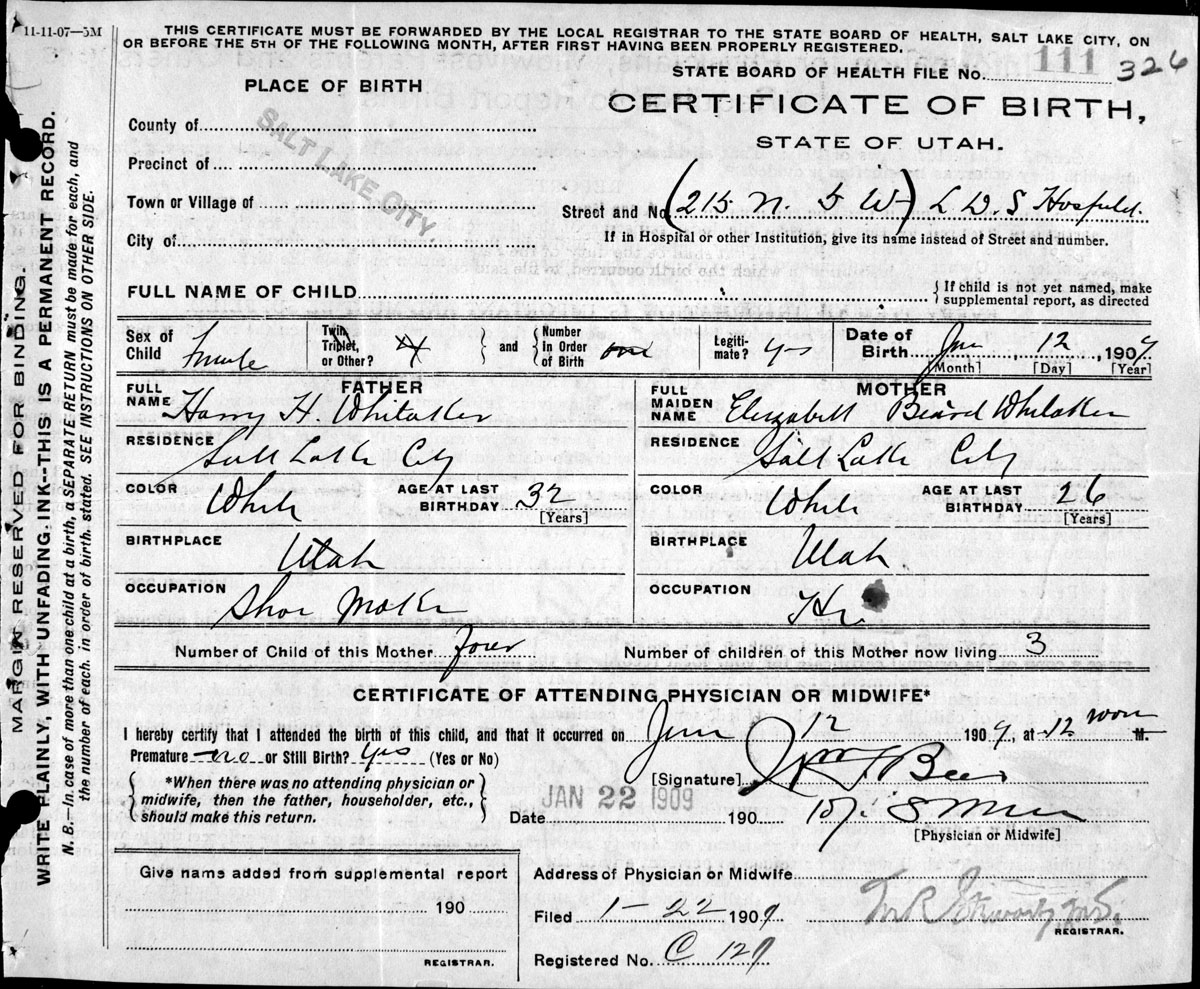 11-11-07—5M
THIS CERTIFICATE MUST BE FORWARDED BY THE LOCAL REGISTRAR TO THE STATE BOARD OF HEALTH, SALT LAKE CITY, ON
OR BEFORE THE 5TH OF THE FOLLOWING MONTH, AFTER FIRST HAVING BEEN PROPERLY REGISTERED.
STATE BOARD OF HEALTH FILE No. 111 326
PLACE OF BIRTH
CERTIFICATE OF BIRTH,
STATE OF UTAH.
County of
Precinct of
Town or Village of
City of
SALT LAKE CITY
Street and No. (215 N. 5 W) L D. S Hospital.
If in Hospital or other Institution, give its name instead of Street and number.
FULL NAME OF CHILD
If child is not yet named, make
supplemental report, as directed
Sex of Child
Twin, Triplet, or Other?
and
Number in Order of Birth one
Legitimate? yes
Date of Birth Jan 12, 1909
[Month] [Day] [Year]
FATHER
FULL NAME Harry H. Whitaker
RESIDENCE Salt Lake City
COLOR White
AGE AT LAST BIRTHDAY 32
[Years]
BIRTHPLACE Utah
OCCUPATION Shoe Maker
MOTHER
FULL MAIDEN NAME Elizabeth Beard Whitaker
RESIDENCE Salt Lake City
COLOR White
AGE AT LAST BIRTHDAY 26
[Years]
BIRTHPLACE Utah
OCCUPATION
Number of Child of this Mother four
Number of children of this Mother now living 3
CERTIFICATE OF ATTENDING PHYSICIAN OR MIDWIFE*
I hereby certify that I attended the birth of this child, and that it occurred on Jan 12 1909, at 12 noon M.
Premature no or Still Birth? yes (Yes or No)
*When there was no attending physician or
midwife, then the father, householder, etc.,
should make this return.
[Signature]
JAN 22 1909
Date 190
[Physician or Midwife]
Give name added from supplemental report
190
REGISTRAR.
Address of Physician or Midwife
Filed 1-22 1909
REGISTRAR.
Registered No. C 129
MARGIN RESERVED FOR BINDING.
WRITE PLAINLY, WITH UNFADING INK--THIS IS A PERMANENT RECORD.
N. B.—In case of more than one child at a birth, a SEPARATE RETURN must be made for each, and
the number of each, in order of birth, stated. SEE INSTRUCTIONS ON OTHER SIDE.